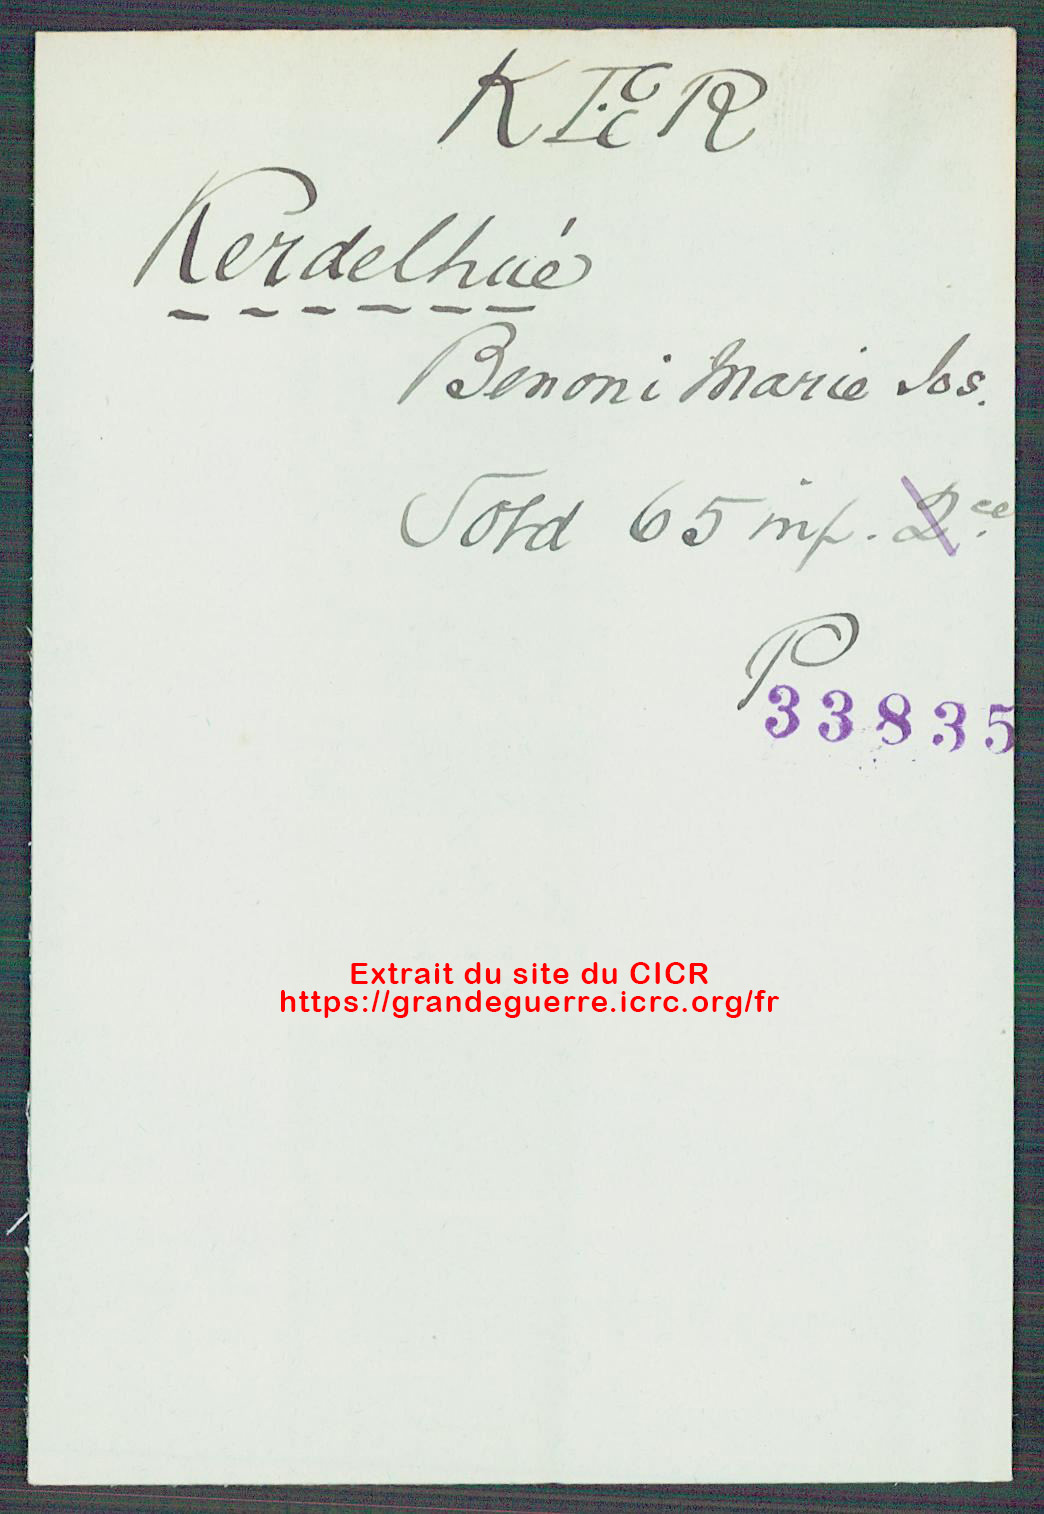 KIER
Kerdelhué
Benoni Marie Jos.
Sold 65 inf. D ce.
P
33835
Extrait du site du CICR
https://grandeguerre.icrc.org/fr